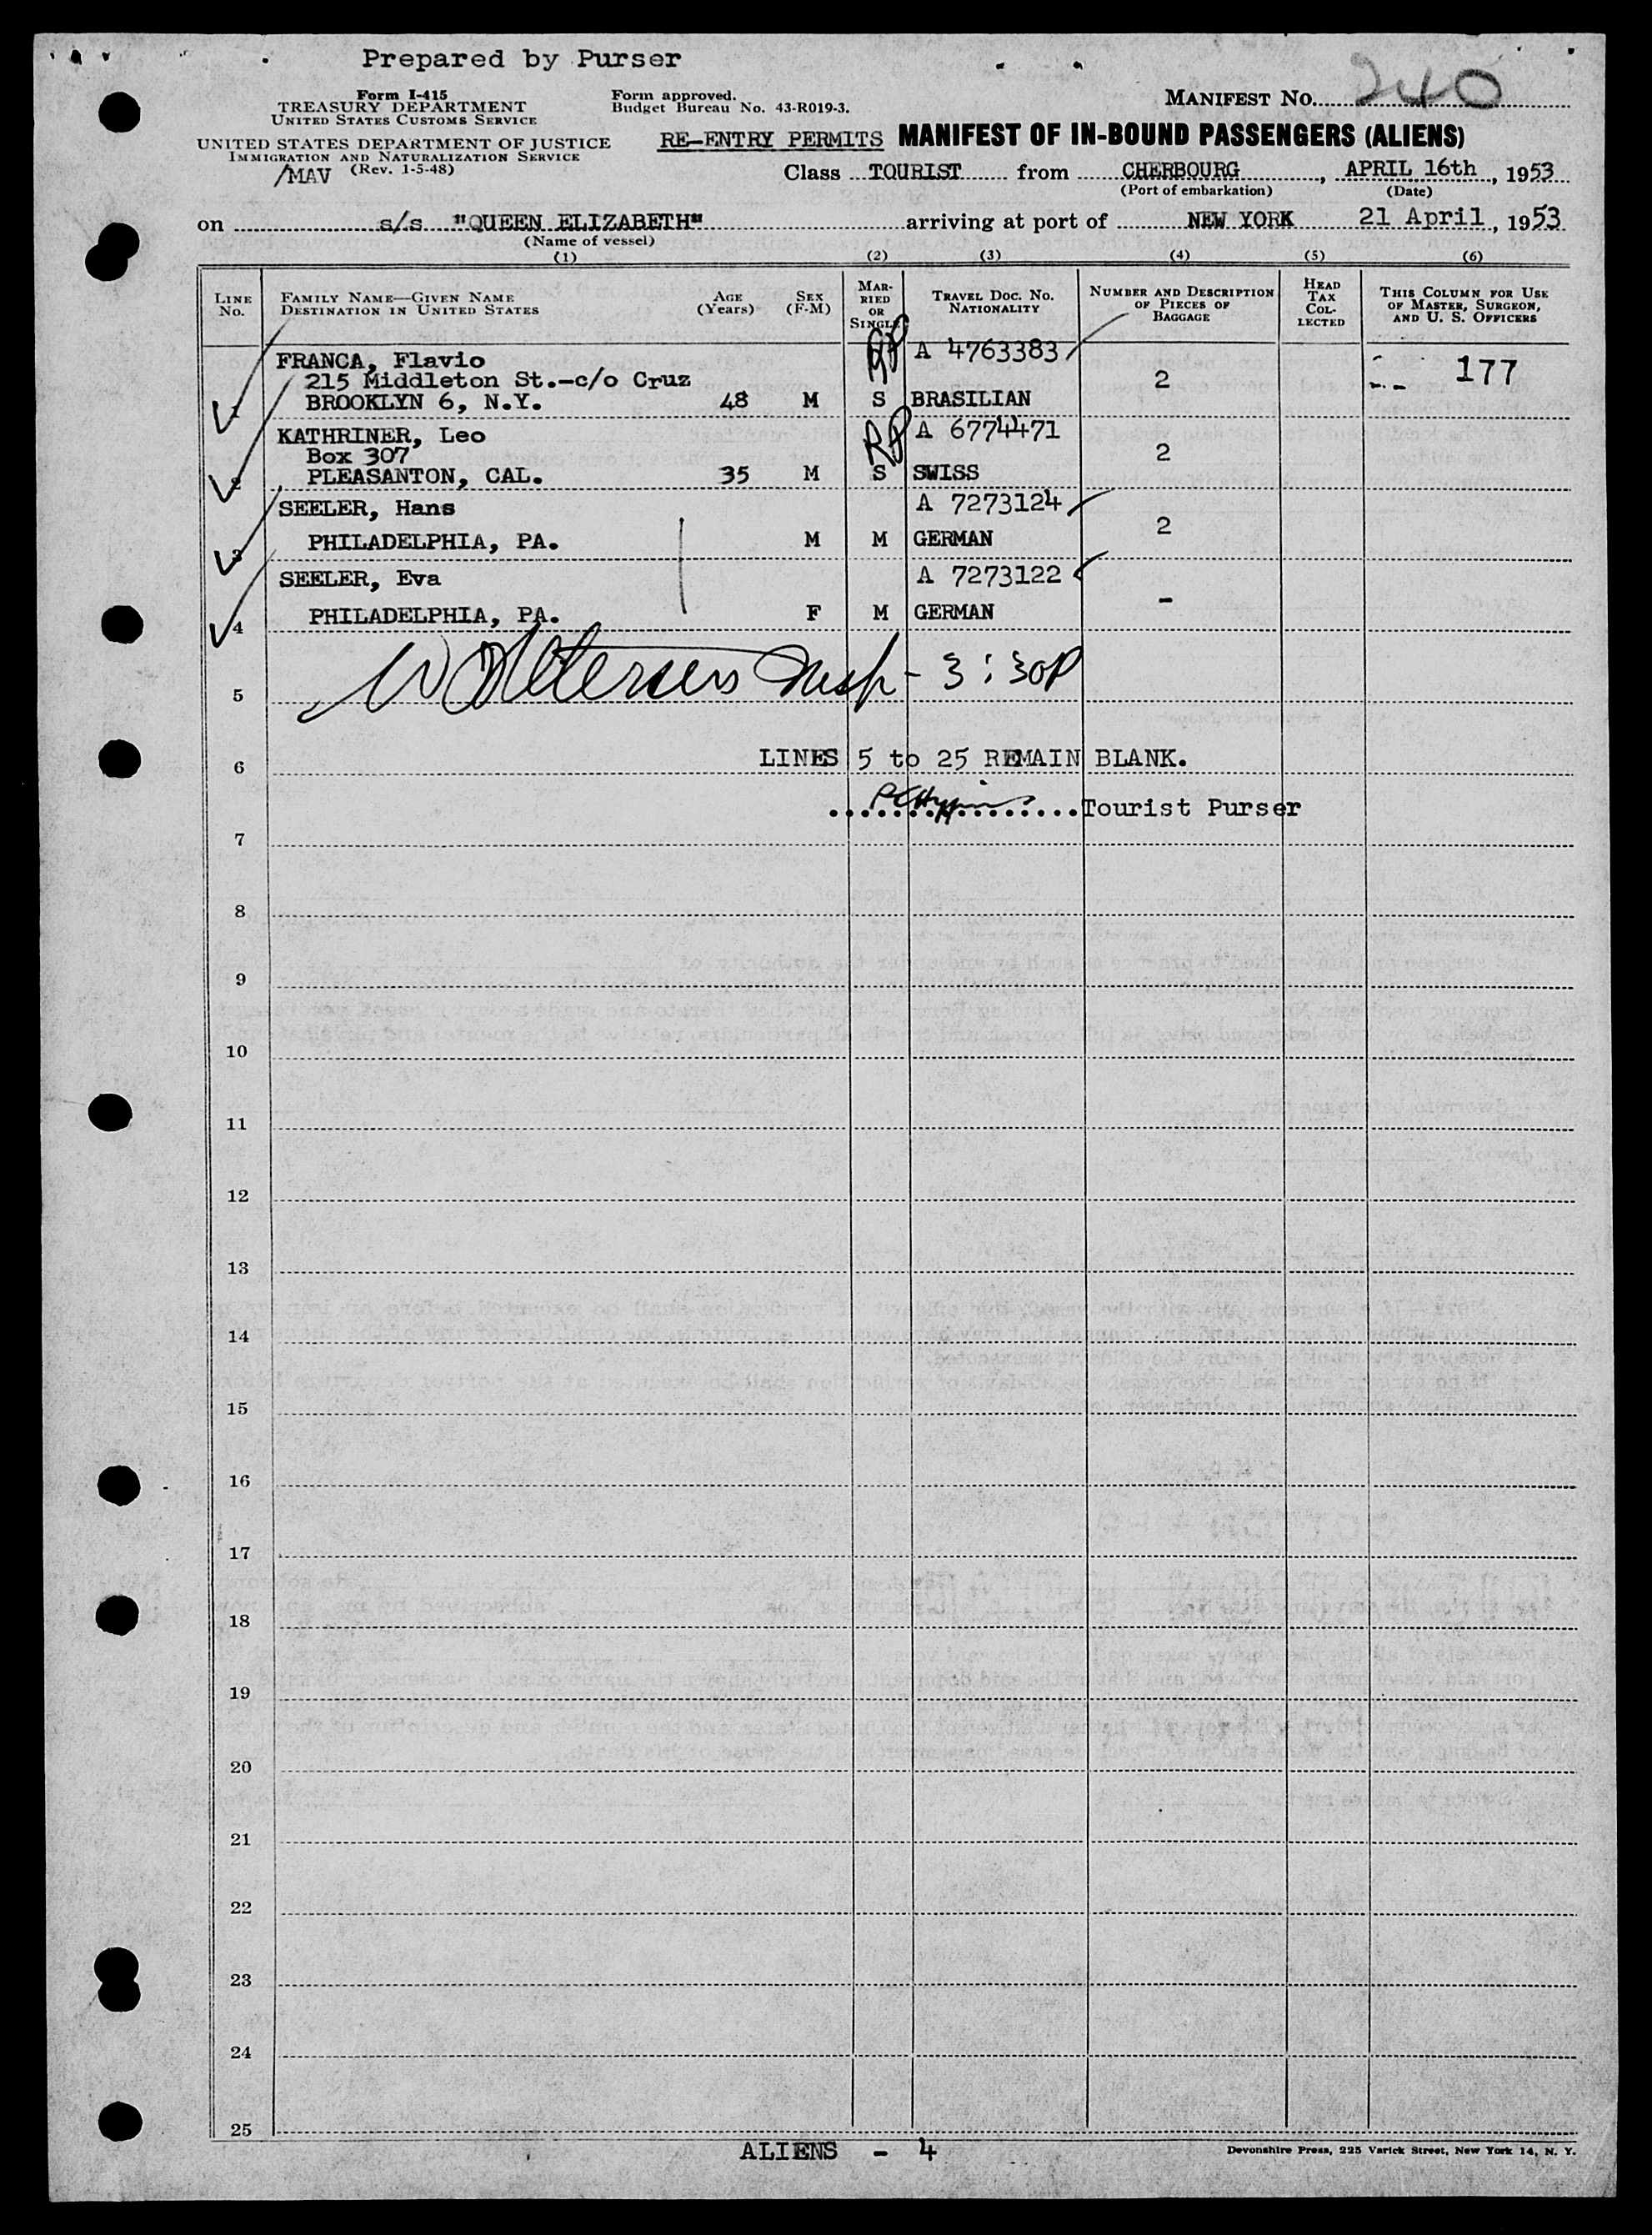 Prepared by Purser
Form I-415
TREASURY DEPARTMENT
UNITED STATES CUSTOMS SERVICE
Form approved.
Budget Bureau No. 43-R019-3.
MANIFEST NO. 240
UNITED STATES DEPARTMENT OF JUSTICE
IMMIGRATION AND NATURALIZATION SERVICE
(Rev. 1-5-48)
/MAV
RE-ENTRY PERMITS MANIFEST OF IN-BOUND PASSENGERS (ALIENS)
Class TOURIST from CHERBOURG, APRIL 16th, 1953
(Port of embarkation) (Date)
on s/s "QUEEN ELIZABETH" arriving at port of NEW YORK 21 April, 1953
(Name of vessel)
(1) (2) (3) (4) (5) (6)
LINE No. FAMILY NAME—GIVEN NAME DESTINATION IN UNITED STATES AGE (Years) SEX (F-M) MARRIED OR SINGLE TRAVEL DOC. NO. NATIONALITY NUMBER AND DESCRIPTION OF PIECES OF BAGGAGE HEAD TAX COLLECTED THIS COLUMN FOR USE OF MASTER, SURGEON, AND U. S. OFFICERS
FRANCA, Flavio RP A 4763383
215 Middleton St.-c/o Cruz 2 177
BROOKLYN 6, N.Y. 48 M S BRASILIAN
KATHRINER, Leo RP A 6774471
Box 307 2
2 PLEASANTON, CAL. 35 M S SWISS
SEELER, Hans A 7273124
2
3 PHILADELPHIA, PA. M M GERMAN
SEELER, Eva A 7273122
-
4 PHILADELPHIA, PA. F M GERMAN
Insp - 3:30P
5
6 LINES 5 to 25 REMAIN BLANK.
Tourist Purser
7
8
9
10
11
12
13
14
15
16
17
18
19
20
21
22
23
24
25
ALIENS - 4
Devonshire Press, 225 Varick Street, New York 14, N. Y.